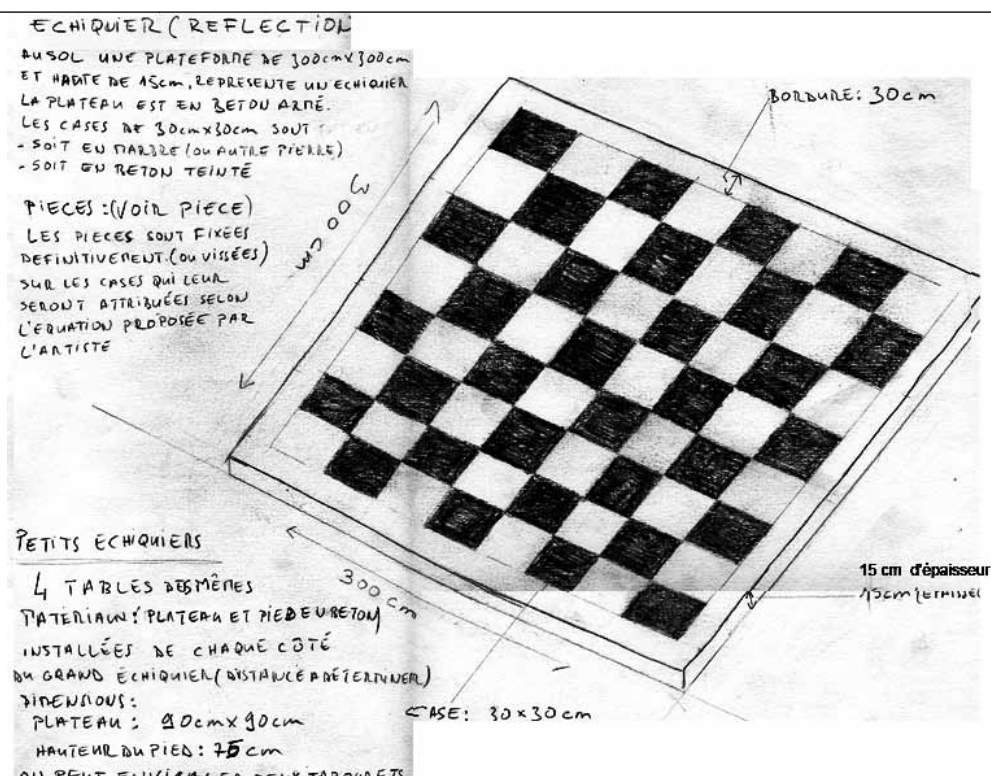 ECHIQUIER (REFLECTION
AU SOL UNE PLATEFORME DE 300cm x 300cm
ET HAUTE DE 15cm, REPRESENTE UN ECHIQUIER
LA PLATEAU EST EN BETON ARMÉ.
LES CASES DE 30cmx30cm SONT
- SOIT EN MARBRE (OU AUTRE PIERRE)
- SOIT EN BETON TEINTÉ
PIECES : (VOIR PIECE)
LES PIECES SONT FIXÉES
DEFINITIVEMENT (OU VISSÉES)
SUR LES CASES QUI LEUR
SERONT ATTRIBUÉES SELON
L'EQUATION PROPOSÉE PAR
L'ARTISTE
BORDURE: 30cm
300 cm
PETITS ECHIQUIERS
4 TABLES DES MÊMES
MATERIAUX: PLATEAU ET PIED EN BETON
INSTALLÉES DE CHAQUE CÔTÉ
DU GRAND ÉCHIQUIER (DISTANCE A DÉTERMINER)
DIMENSIONS:
PLATEAU : 90cm x 90cm
HAUTEUR DU PIED : 75 cm
ON PEUT ENVISAGER DEUX TABOURETS
300 cm
CASE: 30 x 30 cm
15 cm d'épaisseur
15cm